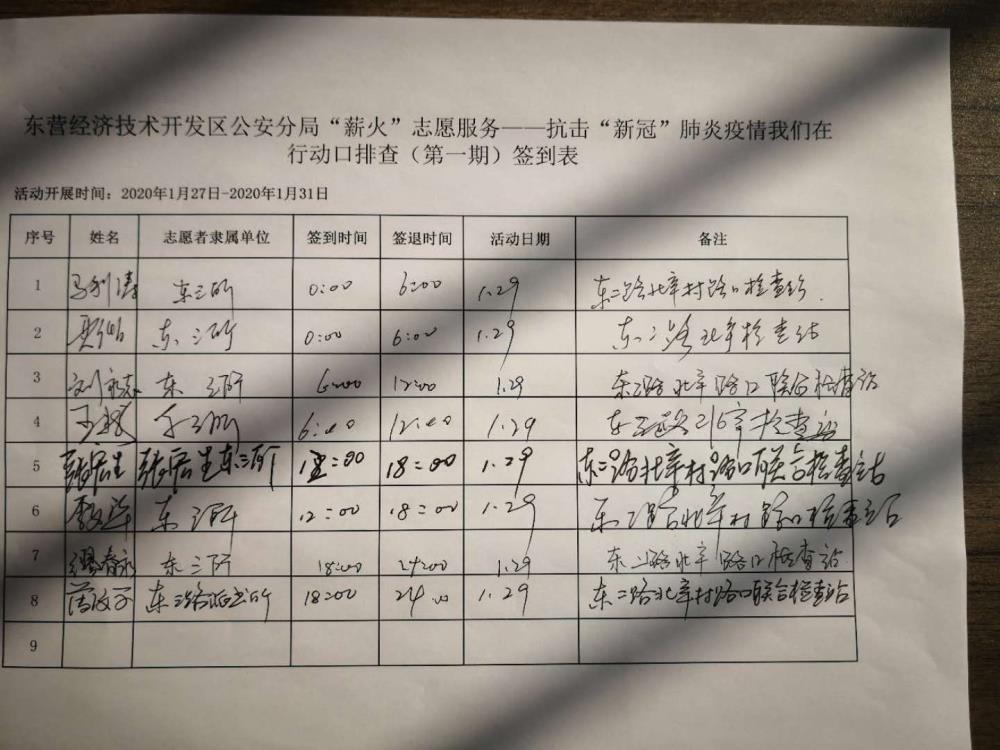 东营经济技术开发区公安分局“薪火”志愿服务——抗击“新冠”肺炎疫情我们在
行动口排查（第一期）签到表
活动开展时间：2020年1月27日-2020年1月31日
序号 姓名 志愿者隶属单位 签到时间 签退时间 活动日期 备注
1 东三所 0:00 6:00 1.29 东二路北辛村路口检查站.
2 东三所 0:00 6:00 1.29 东二路北辛检查站
3 刘永志 东三所 6:00 12:00 1.29 东二路北辛路口联合检查站
4 东三所 6:00 12:00 1.29 检查站
5 张宏生 张宏生东三所 12:00 18:00 1.29 东二路北辛村路口联合检查站
6 东三所 12:00 18:00 1.29 东二路北辛村路口检查站
7 东三所 18:00 24:00 1.29 东二路北辛路口检查站
8 东三路派出所 18:00 24:00 1.29 东二路北辛村路口联合检查站
9